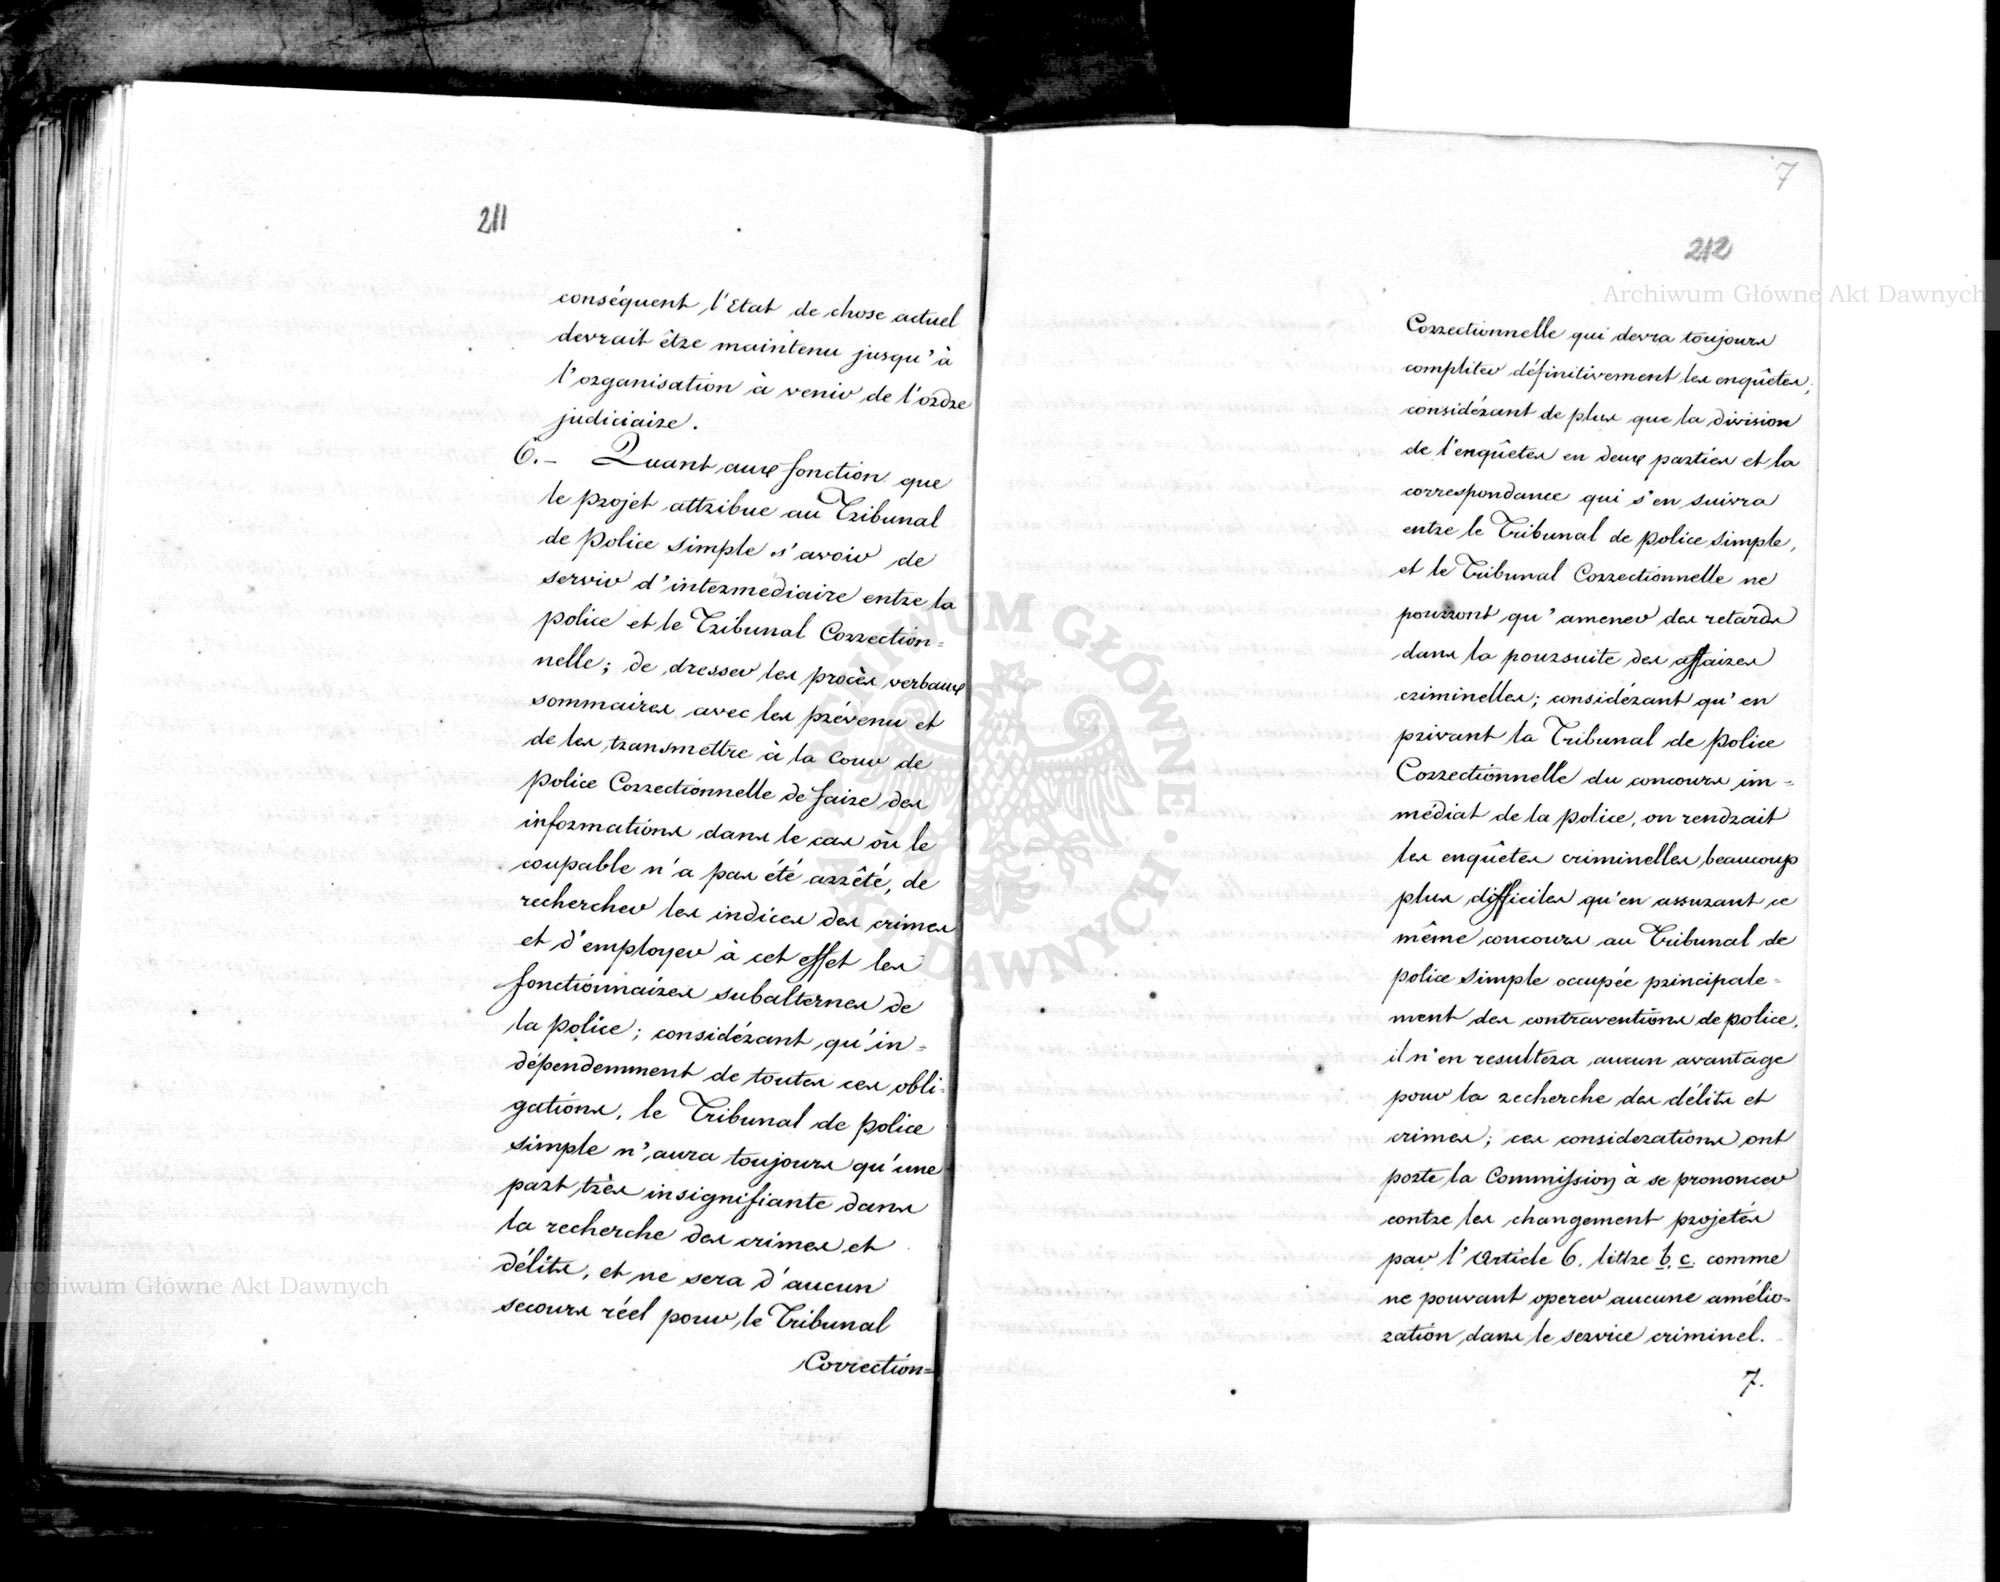 211
conséquent l'Etat de chose actuel
devrait être maintenu jusqu'à
l'organisation à venir de l'ordre
judiciaire.
6.– Quant aux fonction que
le projet attribue au Tribunal
de police simple s'avoir de
servir d'intermediaire entre la
police et le Tribunal Correction=
nelle; de dresser les procès verbaux
sommaires avec les prévenu et
de les transmettre à la Cour de
police Correctionnelle de faire des
informations dans le cas où le
coupable n'a pas été arrêté, de
rechercher les indices des crimes
et d'employer à cet effet les
fonctionnaires subalternes de
la police; considérant qu'in=
dépendemment de toutes ces obli=
gations, le Tribunal de police
simple n'aura toujours qu'une
part très insignifiante dans
la recherche des crimes et
délits, et ne sera d'aucun
secours réel pour le Tribunal
Correction=
7
212
Correctionnelle qui devra toujours
compliter définitivement les enquêtes;
considérant de plus que la division
de l'enquêtes en deux parties et la
correspondance qui s'en suivra
entre le Tribunal de police simple,
et le Tribunal Correctionnelle ne
pourront qu'amener des retards
dans la poursuite des affaires
criminelles; considérant qu'en
privant la Tribunal de police
Correctionnelle du concours im=
médiat de la police, on rendrait
les enquêtes criminelles beaucoup
plus difficiles qu'en assurant ce
même concours au Tribunal de
police simple occupée principale=
ment des contraventions de police,
il n'en resultera aucun avantage
pour la recherche des délits et
crimes; ces considerations ont
porte la Commission à se prononcer
contre les changement projetés
par l'Article 6. littre b. c. comme
ne pouvant operer aucune amélio=
ration dans le service criminel.
7.
Archiwum Główne Akt Dawnych
Archiwum Główne Akt Dawnych
ARCHIWUM GŁÓWNE AKT DAWNYCH